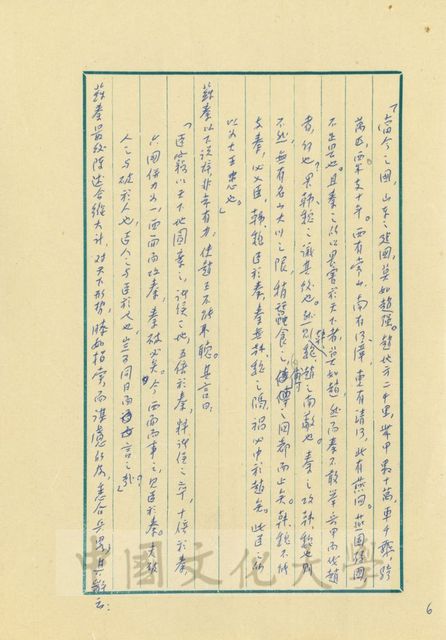 「當今之國，山東之建國，莫如趙強。趙地方二千里，帶甲數十萬，車千乘，騎
萬匹，粟支十年。西有常山，南有河漳，東有清河，北有燕國。燕固弱國，
不足畏也。且秦之所以畏害於天下者，莫如趙。然而秦不敢舉兵甲而伐趙
者，何也？畏韓魏之議其後也。然則韓魏，趙之南蔽也。秦之攻韓魏也，則
不然，無有名山大川之限，稍蠶食之，傅之國都而止矣。韓魏不能
支秦，必入臣。韓魏臣於秦，秦無韓魏之隔，禍必中於趙矣。此臣之所
以為大王患也。」
蘇秦以下說辭，非常有力，使趙王不能不聽。其言曰：
「臣竊以天下地圖案之，諸侯之地，五倍於秦，料諸侯之卒，十倍於秦，
六國併力為一，西面而攻秦，秦破必矣。今西面而事之，見臣於秦。夫破
人之與破於人也，臣人之與臣於人也，豈可同日而言之哉？」
蘇秦最後陳述合縱大計，對天下形勢，瞭如指掌，而謀慮
中國文化大學
6